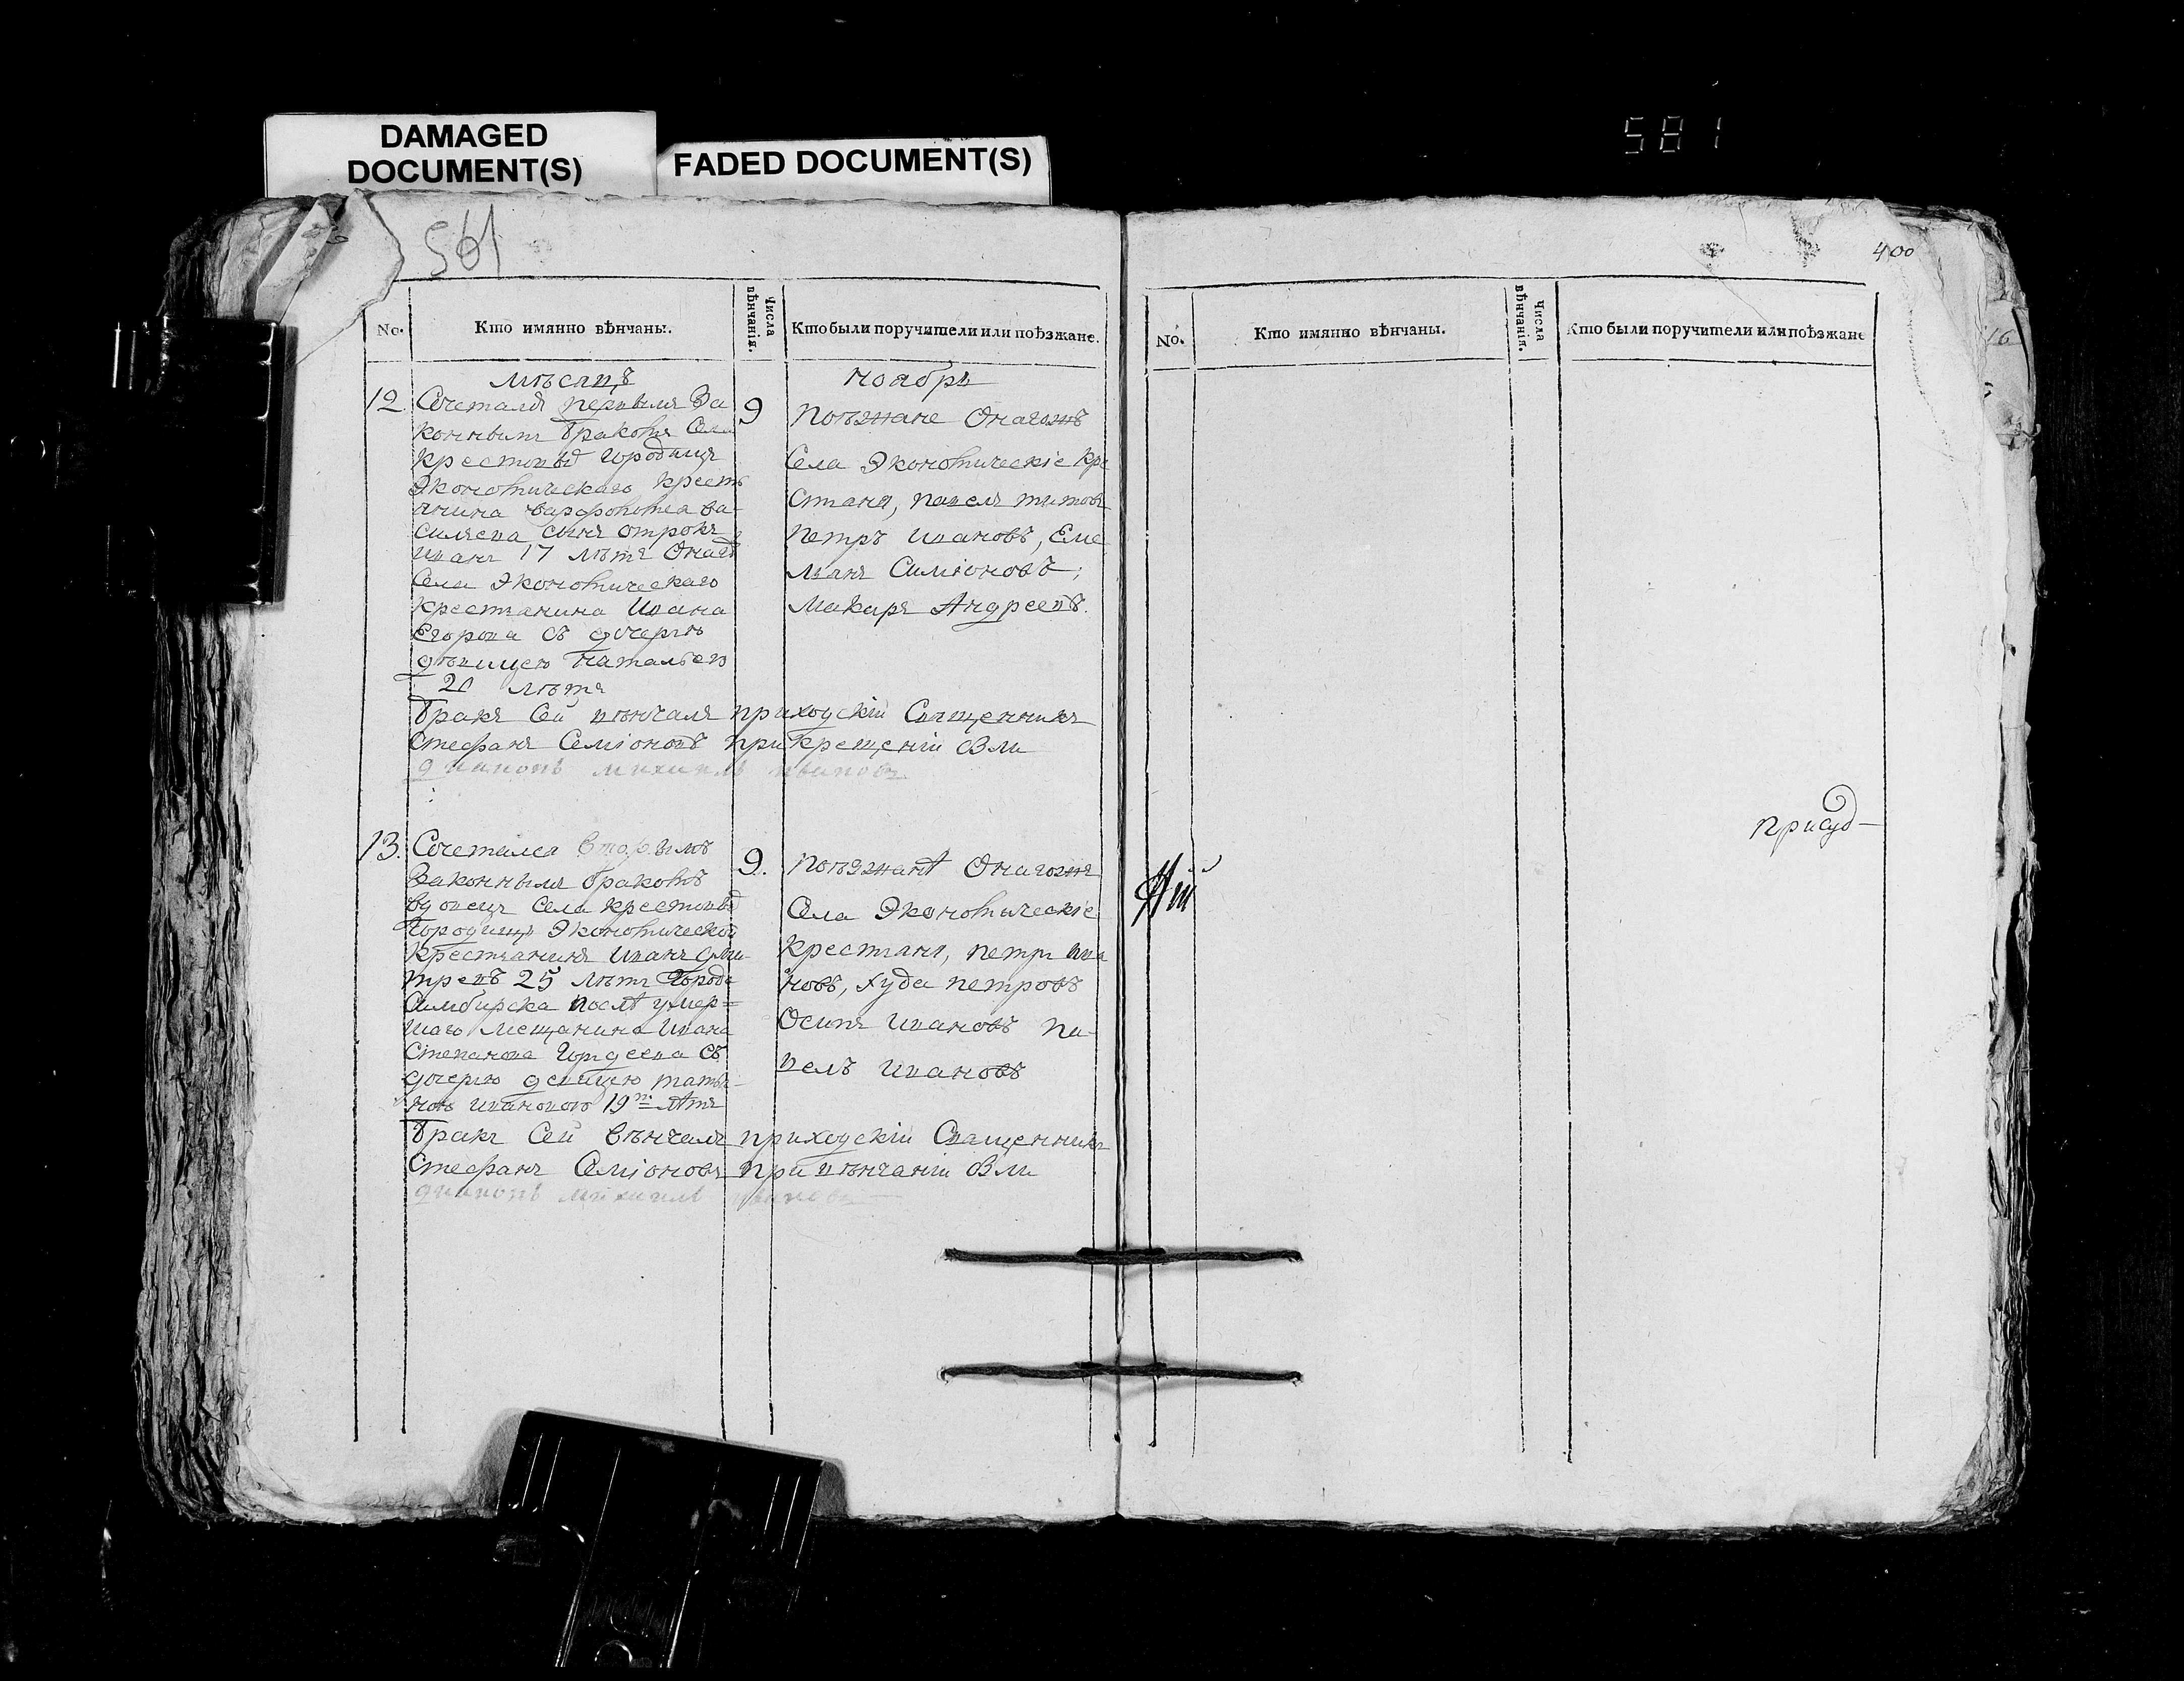 DAMAGED
DOCUMENT(S)
FADED DOCUMENT(S)
581
561
400
16
No.
Кто имянно вѣнчаны.
Числа вѣнчанія.
Кто были поручители или поѣзжане.
мѣсяцъ
ноябрь
12.
Сочетался первымъ За
коннымъ бракомъ Села
крестовыхъ городищъ
Экономическаго крестъ
янина варфоломея ва-
сильева сынъ отрокъ
иванъ 17 лѣтъ Онагожъ
Села Экономическаго
крестьянина Ивана
Егорова съ дочерью
дѣвицею натальею
20 лѣтъ
9
Поѣзжане Онагожъ
Села Экономическіе кре
стьяня, павелъ титовъ
петръ ивановъ, Еме
льянъ Симіоновъ,
Макаръ Андреевъ.
бракъ Сей вѣнчалъ приходскій Священникъ
Стефанъ Семіоновъ при крещеніи были
диаконъ михаилъ ивановъ
13.
Сочетался вторымъ
Законнымъ бракомъ
вдовецъ села крестовыхъ
Городищъ Экономической
крестьянинъ иванъ дми-
тревъ 25 лѣтъ Города
Симбирска послѣ умер=
шаго мещанина ивана
Степанова Гордеева съ
дочерью девицею татья-
ною ивановою 19ть лѣтъ
9.
поѣзжанѣ Онагожъ
Села Экономическіе
крестьяня, петръ ива
новъ, худа петровъ
Осипъ ивановъ па-
велъ ивановъ
бракъ Сей вѣнчалъ приходскій Священникъ
Стефанъ Семіоновъ при вѣнчаніи были
диаконъ михаилъ ивановъ
No.
Кто имянно вѣнчаны.
Числа вѣнчанія.
Кто были поручители или поѣзжане
присуд-